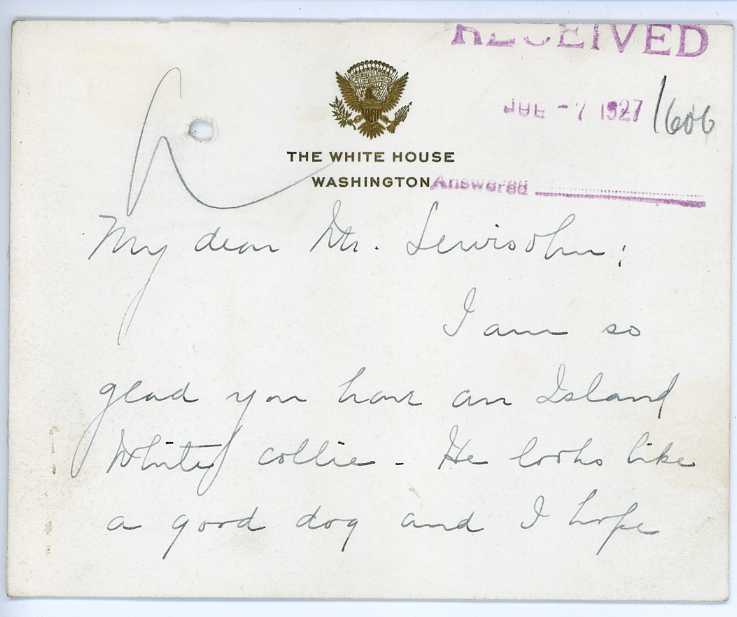 RECEIVED
JUL -7 1927 1606
THE WHITE HOUSE
WASHINGTON
Answered
My dear Mr. Lewisohn:
I am so
glad you have an Island
White collie - He looks like
a good dog and I hope